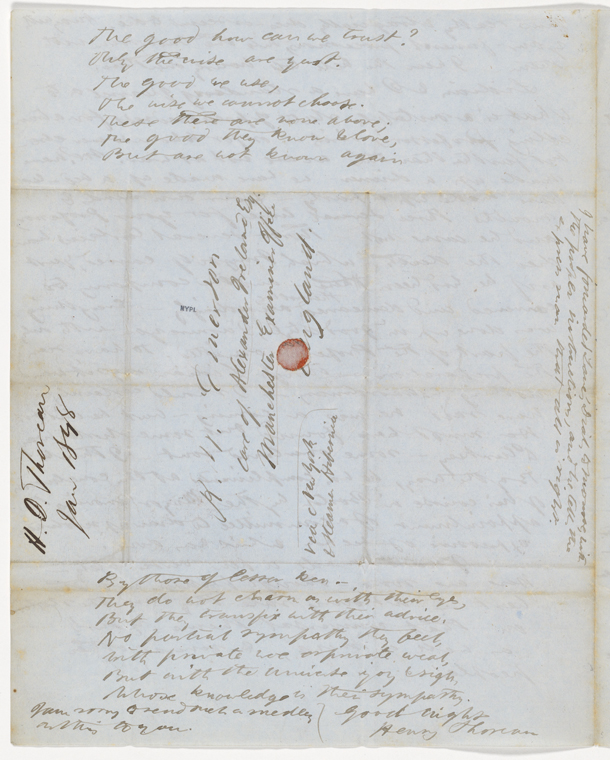 The good how can we trust?
Only the wise are just.
The good we use,
The wise we cannot choose.
These there are none above;
The good they know & love,
But are not known again
By those of lesser ken.—
They do not charm us with their eyes,
But they transfix with their advice.
No partial sympathy they feel,
With private woe or private weal,
But with the universe joy & sigh,
Whose knowledge is their sympathy.
Good night
Henry Thoreau
I am sorry to send such a medley
as this to you.
I have forwarded Lane's Dial to Munroe, and
R. W. Emerson
care of Alexander Ireland Esq.
Manchester Examiner Office
England.
via New York
& Steamer
NYPL
H. D. Thoreau
Jan 1848